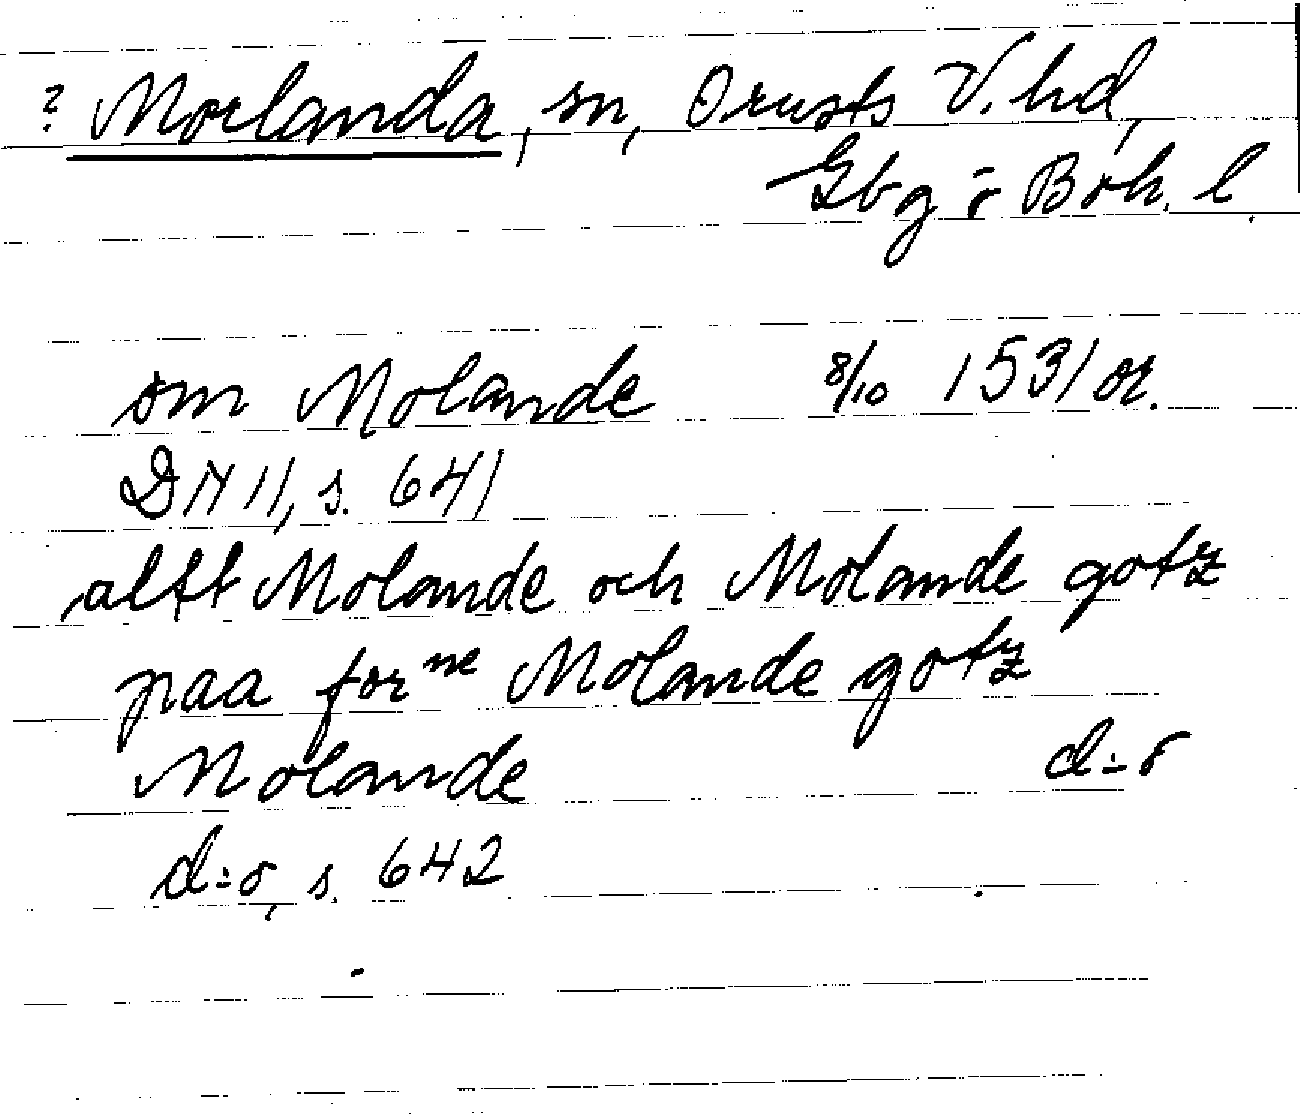 ? Morlanda, sn, Orusts V. hd,
Gbg o Boh. l.
om Molande 8/10 1531 or.
DN 11, s. 641
altt Molande och Molande gotz
paa forne Molande gotz
Molande d:o
d:o, s. 642